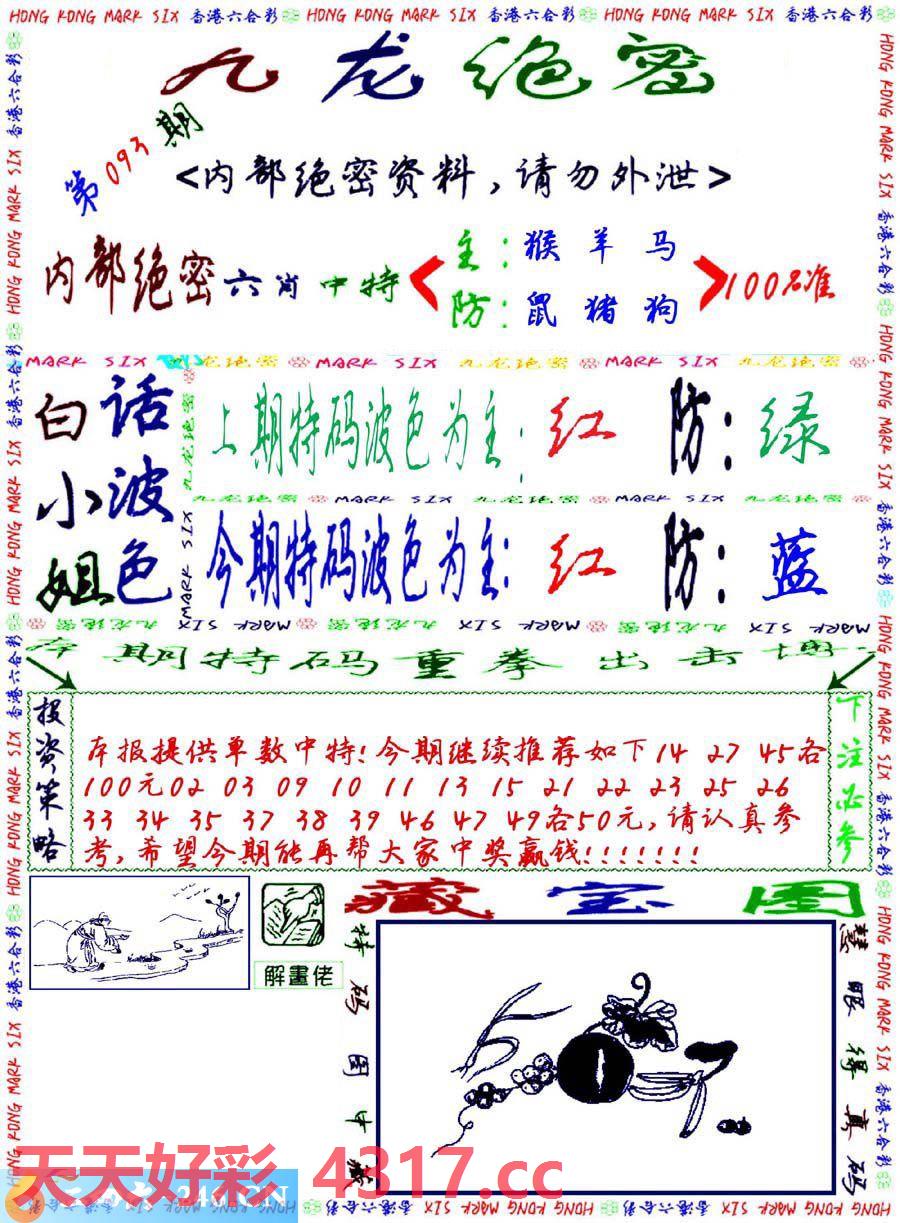 HONG KONG MARK SIX 香港六合彩 HONG KONG MARK SIX 香港六合彩 HONG KONG MARK SIX 香港六合彩
九龙绝密
第093期
<内部绝密资料,请勿外泄>
内部绝密六肖中特
主:猴羊马
防:鼠猪狗
100%准
MARK SIX 九龙绝密 MARK SIX 九龙绝密 MARK SIX 九龙绝密
白话小波姐色
上期特码波色为主:红 防:绿
九龙绝密 MARK SIX 九龙绝密 MARK SIX 九龙绝密
今期特码波色为主:红 防:蓝
期特码重拳出击
投资策略
本报提供单数中特!今期继续推荐如下14 27 45各
100元02 03 09 10 11 13 15 21 22 23 25 26
33 34 35 37 38 39 46 47 49各50元,请认真参
考,希望今期能再帮大家中奖赢钱!!!!!!!
下注必参
解畫佬
藏宝图
特码图中藏
慧眼得真码
天天好彩 4317.cc